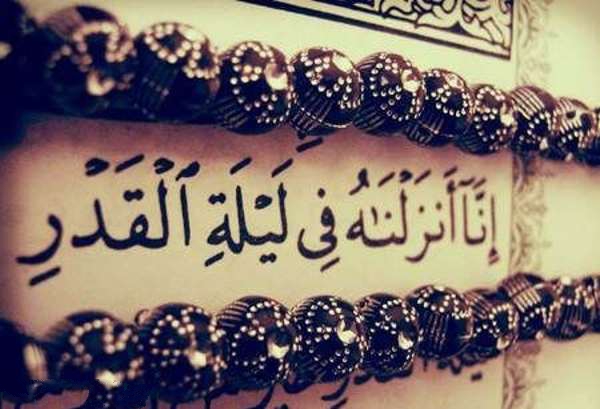 إِنَّآ أَنزَلْنَٰهُ فِى لَيْلَةِ ٱلْقَدْرِ